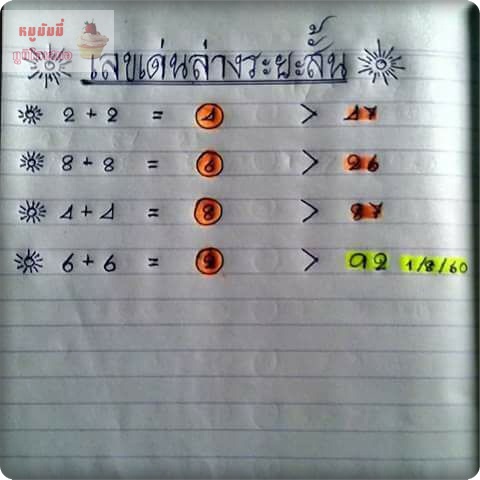 หมูมัมมี่
เลขเด่นล่างระยะสั้น
2 + 2 = 4 > 47
8 + 8 = 6 > 26
4 + 4 = 8 > 87
6 + 6 = 2 > a2 1/8/60